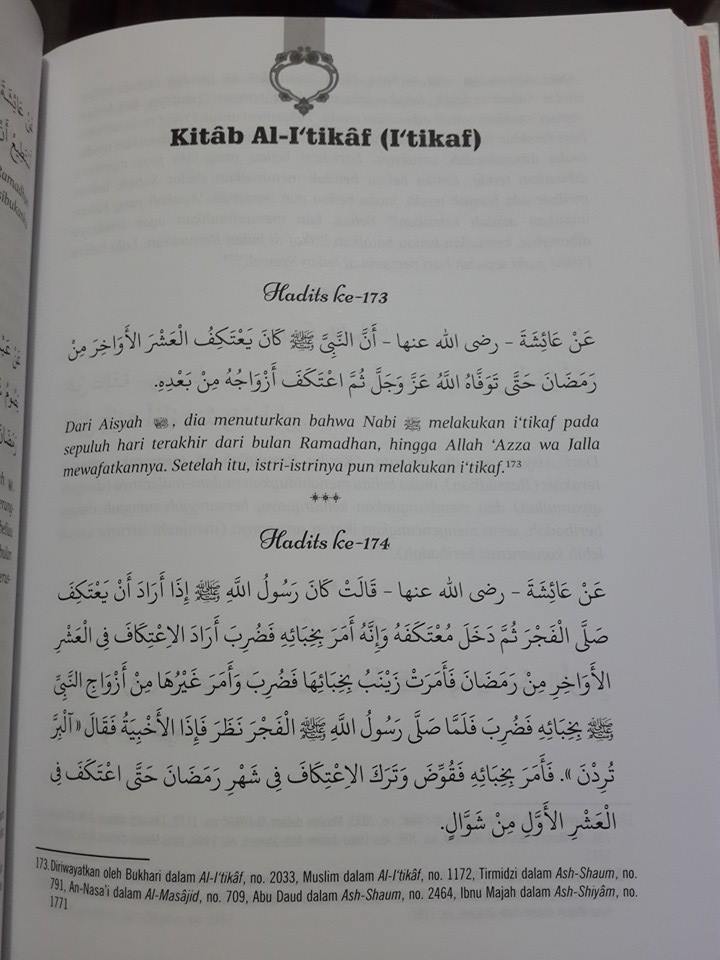 Kitâb Al-I‘tikâf (I‘tikaf)
Hadits ke-173
عَنْ عَائِشَةَ - رضى الله عنها - أَنَّ النَّبِيَّ ﷺ كَانَ يَعْتَكِفُ الْعَشْرَ الأَوَاخِرَ مِنْ
رَمَضَانَ حَتَّى تَوَفَّاهُ اللَّهُ عَزَّ وَجَلَّ ثُمَّ اعْتَكَفَ أَزْوَاجُهُ مِنْ بَعْدِهِ.
Dari Aisyah, dia menuturkan bahwa Nabi ﷺ melakukan i‘tikaf pada
sepuluh hari terakhir dari bulan Ramadhan, hingga Allah ‘Azza wa Jalla
mewafatkannya. Setelah itu, istri-istrinya pun melakukan i‘tikaf.¹⁷³
***
Hadits ke-174
عَنْ عَائِشَةَ - رضى الله عنها - قَالَتْ كَانَ رَسُولُ اللَّهِ ﷺ إِذَا أَرَادَ أَنْ يَعْتَكِفَ
صَلَّى الْفَجْرَ ثُمَّ دَخَلَ مُعْتَكَفَهُ وَإِنَّهُ أَمَرَ بِخِبَائِهِ فَضُرِبَ أَرَادَ الاِعْتِكَافَ فِى الْعَشْرِ
الأَوَاخِرِ مِنْ رَمَضَانَ فَأَمَرَتْ زَيْنَبُ بِخِبَائِهَا فَضُرِبَ وَأَمَرَ غَيْرُهَا مِنْ أَزْوَاجِ النَّبِيِّ
ﷺ بِخِبَائِهِ فَضُرِبَ فَلَمَّا صَلَّى رَسُولُ اللَّهِ ﷺ الْفَجْرَ نَظَرَ فَإِذَا الأَخْبِيَةُ فَقَالَ « آلْبِرَّ
تُرِدْنَ ». فَأَمَرَ بِخِبَائِهِ فَقُوِّضَ وَتَرَكَ الاِعْتِكَافَ فِى شَهْرِ رَمَضَانَ حَتَّى اعْتَكَفَ فِى
الْعَشْرِ الأَوَّلِ مِنْ شَوَّالٍ.
173. Diriwayatkan oleh Bukhari dalam Al-I‘tikâf, no. 2033, Muslim dalam Al-I‘tikâf, no. 1172, Tirmidzi dalam Ash-Shaum, no.
791, An-Nasa'i dalam Al-Masâjid, no. 709, Abu Daud dalam Ash-Shaum, no. 2464, Ibnu Majah dalam Ash-Shiyâm, no.
1771